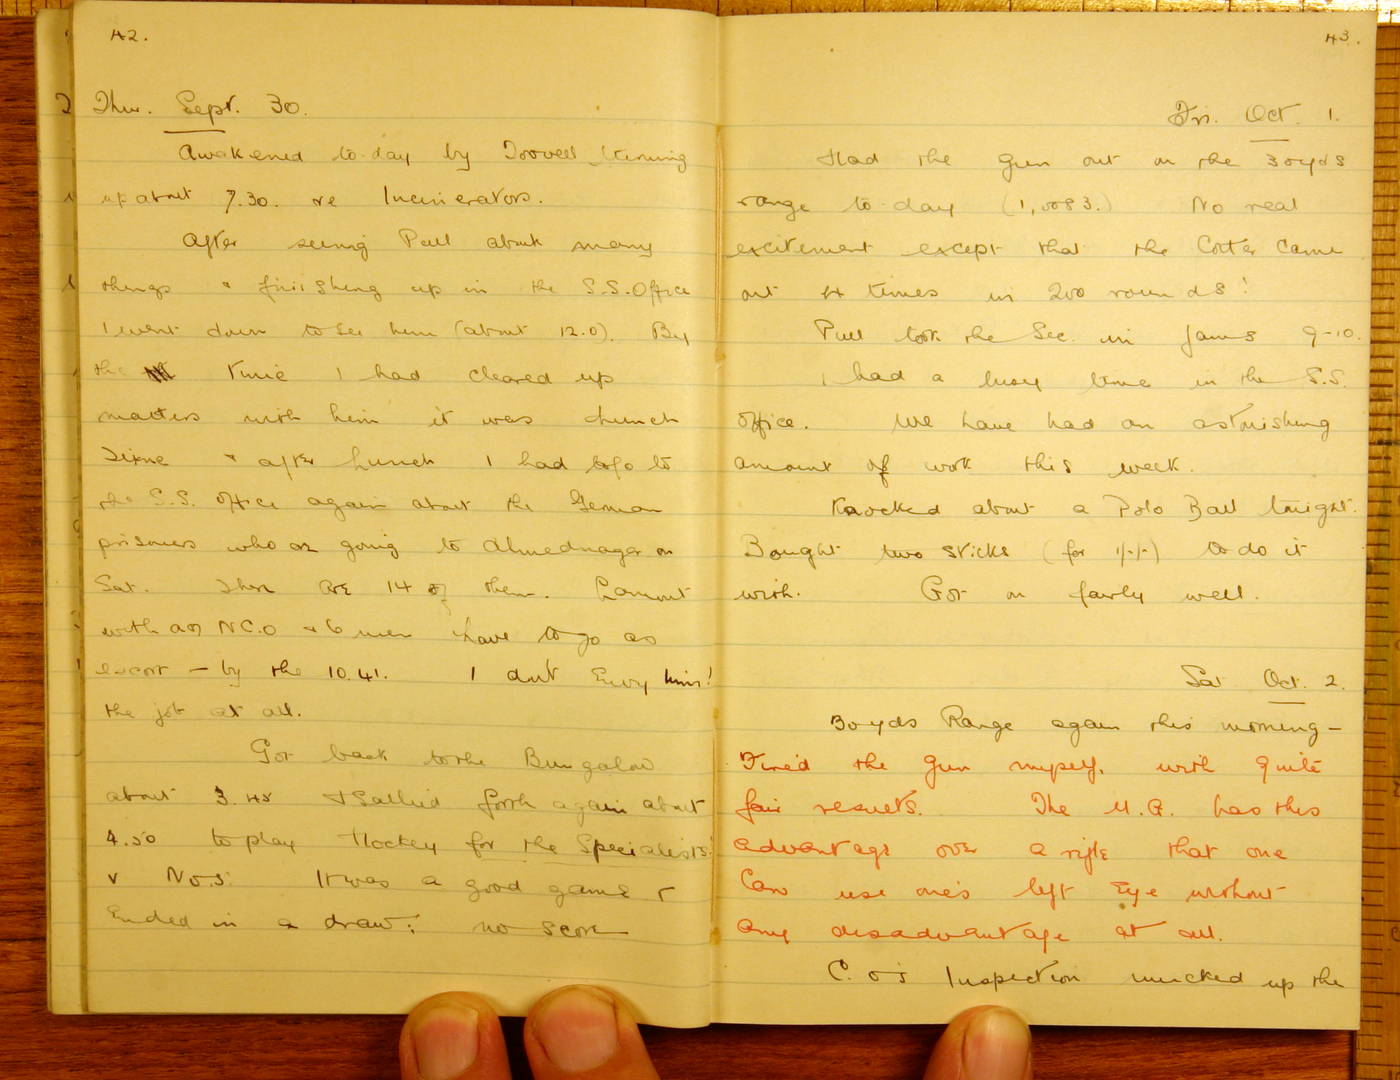 42.
Thur. Sept. 30.
Awakened to-day by Trowell turning
up about 7.30. re Incinerators.
After seeing Pull about many
things & finishing up in the S.S. Office
I went down to see him (about 12.0). By
the time I had cleared up
matters with him it was church
Time & after lunch I had to go to
the S.S. office again about the German
prisoners who are going to Ahmednagar on
Sat. There are 14 of them. Lamont
with an N.C.O & 6 men have to go as
escort — by the 10.41. I don't Envy him!
the job at all.
Got back to the Bungalow
about 3.45 & Sallied forth again about
4.50 to play Hockey for the Specialists'
v No 5. It was a good game &
Ended in a draw: no score
43.
Fri. Oct. 1.
Had the Gun out on the 30 yds
range to-day No real
excitement except that the Cotter came
out 4 times in 200 rounds!
Pull took the Sec. in Jams 9-10.
I had a busy time in the S.S.
Office. We have had an astonishing
amount of work this week.
Knocked about a Polo Ball tonight.
Bought two sticks (for 1/-/-) to do it
with. Got on fairly well.
Sat Oct. 2.
30 yds Range again this morning —
Fired the Gun myself, with quite
fair results. The M.G. has this
advantage over a rifle that one
Can use one's left Eye without
any disadvantage at all.
C.O's Inspection mucked up the